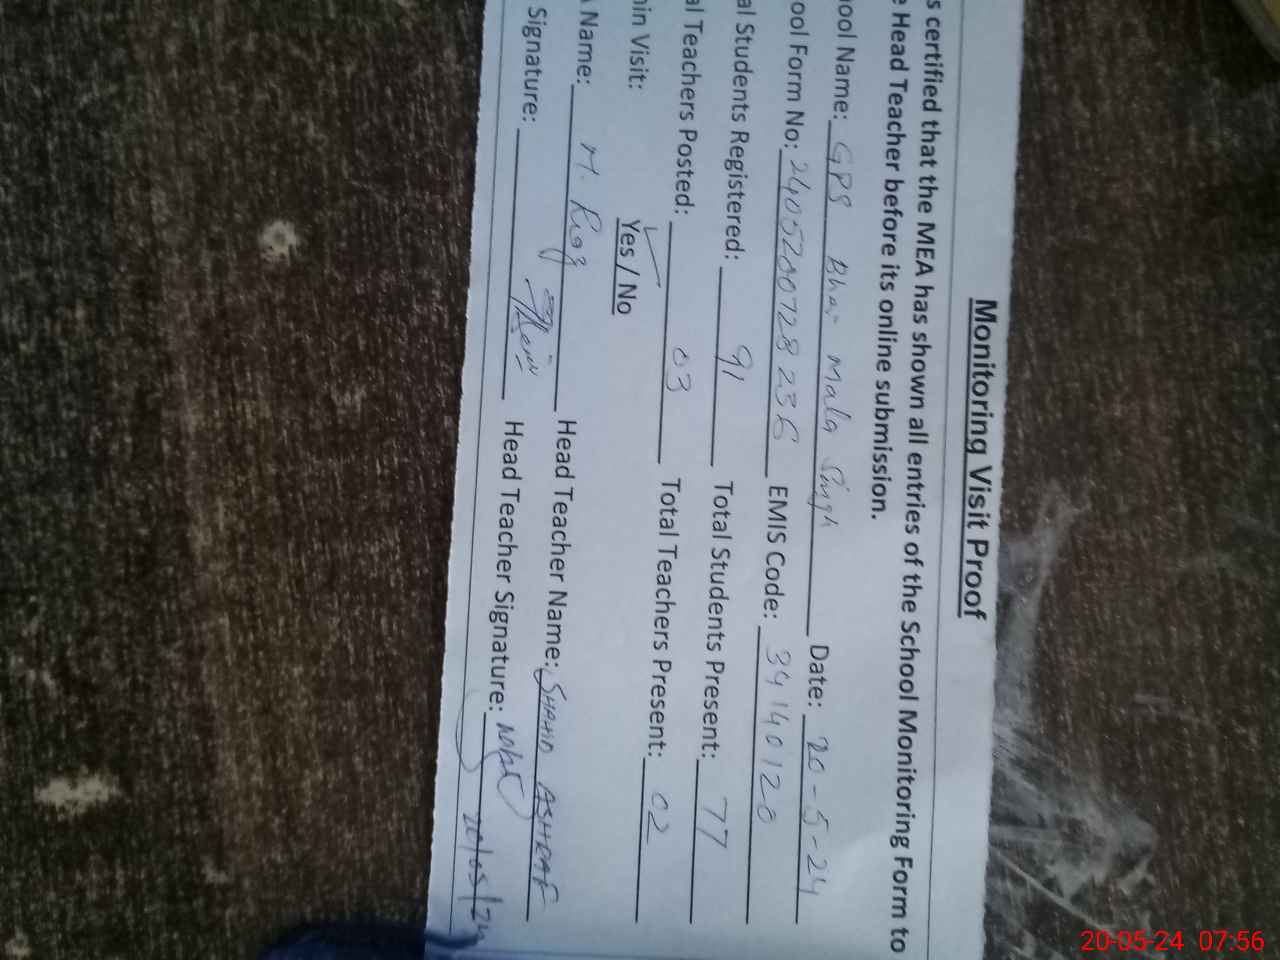 Monitoring Visit Proof
s certified that the MEA has shown all entries of the School Monitoring Form to
e Head Teacher before its online submission.
ool Name: GPS Bhai Mala Singh Date: 20-5-24
ool Form No: 240520072823 EMIS Code: 39140120
al Students Registered: 91 Total Students Present: 77
al Teachers Posted: 03 Total Teachers Present: 02
in Visit: Yes / No
A Name: M. Riaz Head Teacher Name: SHAHID ASHRAF
Signature: Head Teacher Signature:
20/05/24
20-05-24 07:56